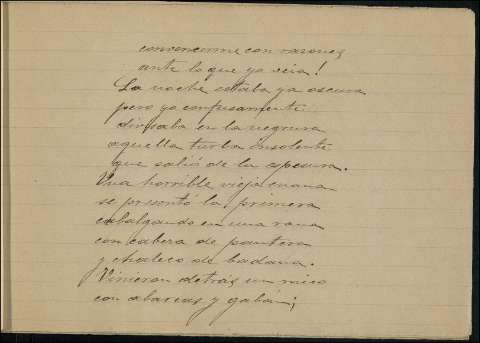 convencerme con razones
ante lo que yo veia!
La noche estaba ya oscura
pero yo confusamente
divisaba en la negrura
aquella turba insolente
que salió de la espesura.
Una horrible vieja enana
se presentó la primera
cabalgando en una rana
con cabeza de pantera
y chaleco de badana.
Vinieron detrás un mico
con abarcas y gabán;